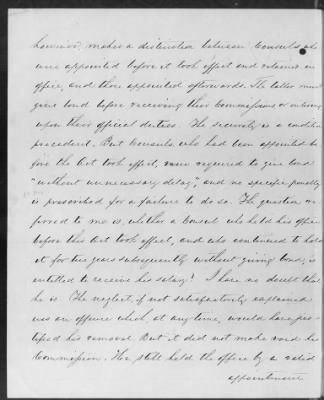 however, makes a distinction between Consuls who
were appointed before it took effect and retained in
office, and those appointed afterwards. The latter must
give bond before receiving their Commissions or entering
upon their official duties. The security is a condition
precedent. But Consuls who had been appointed be-
fore the Act took effect, were required to give bond
"without unnecessary delay," and no specific penalty
is prescribed for a failure to do so. The question re-
ferred to me is, whether a Consul who held his office
before this Act took effect, and who continued to hold
it for two years subsequently without giving bond, is
entitled to receive his salary? I have no doubt that
he is. The neglect, if not satisfactorily explained
was an offence which, at any time, would have jus-
tified his removal. But it did not make void his
Commission. He still held the office by a valid
appointment